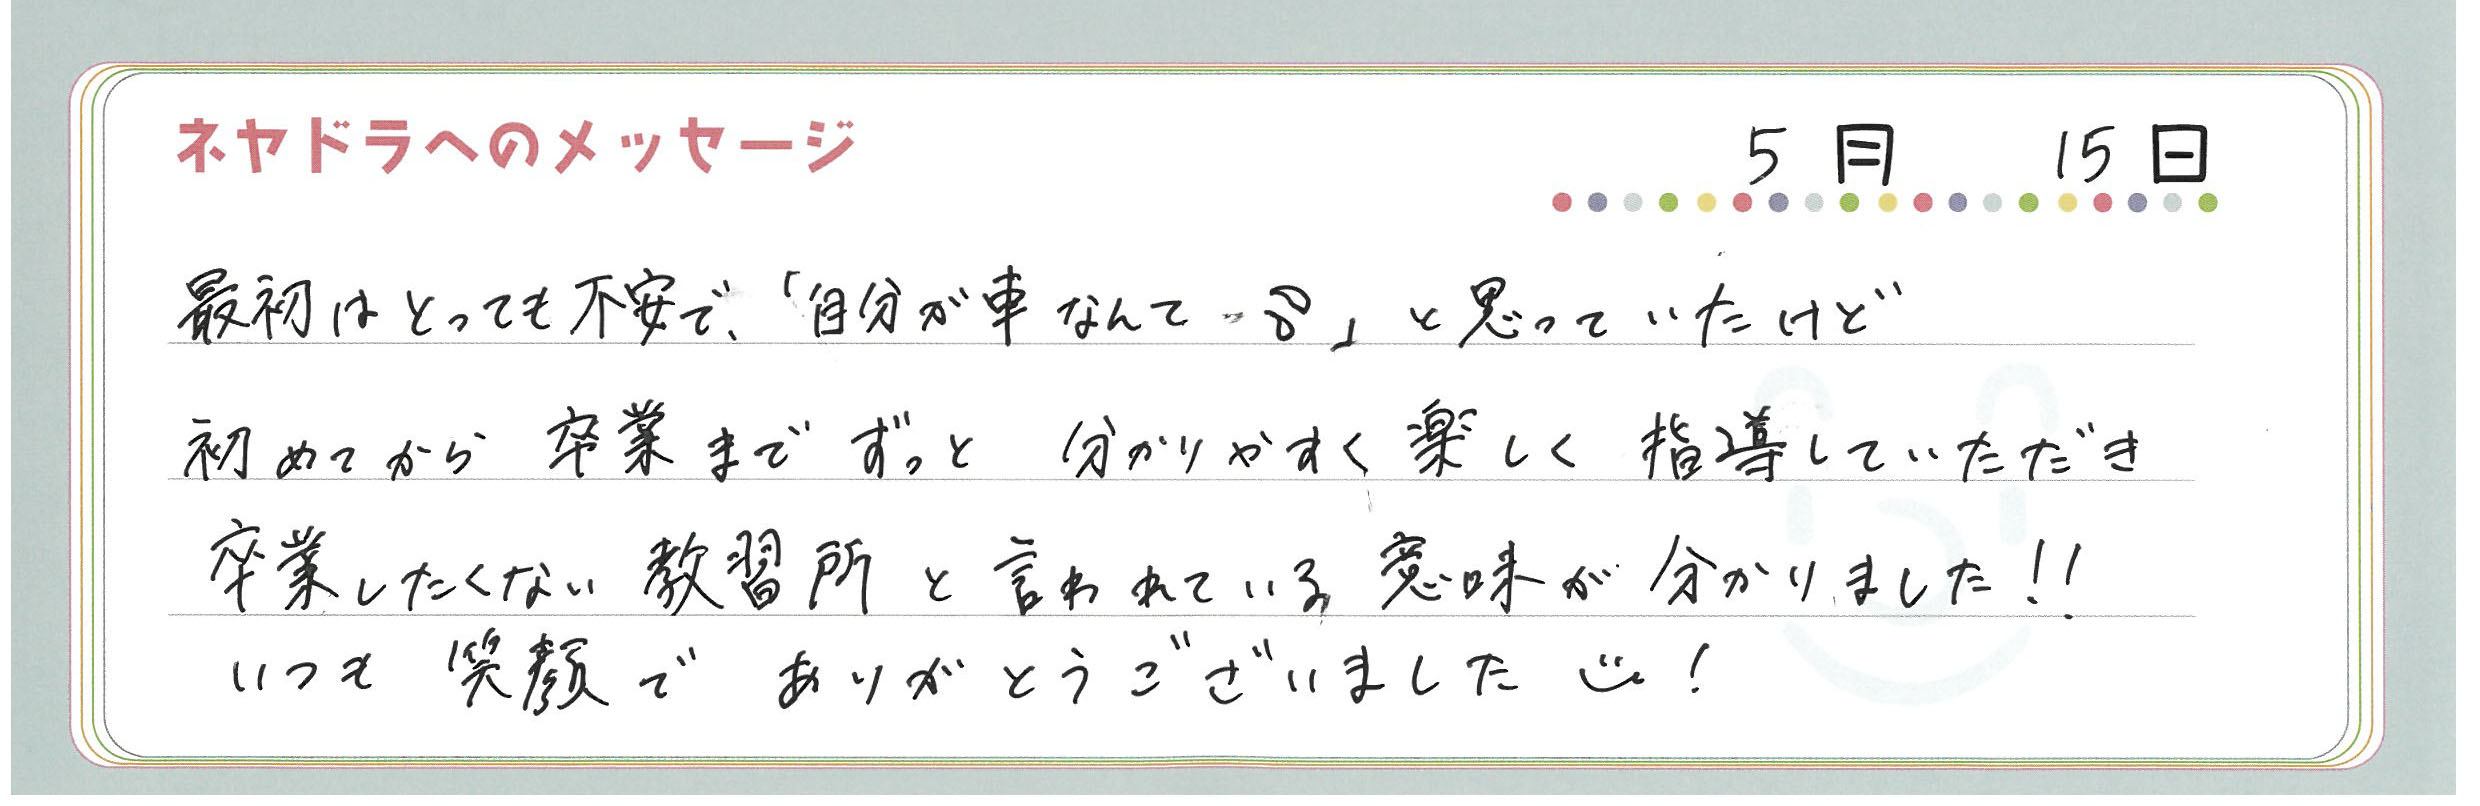 ネヤドラへのメッセージ
5月 15日
最初はとっても不安で、「自分が車なんて…」と思っていたけど
初めてから 卒業まで ずっと 分かりやすく 楽しく 指導していただき
卒業したくない 教習所 と 言われている 意味が 分かりました!!
いつも 笑顔で ありがとうございました !